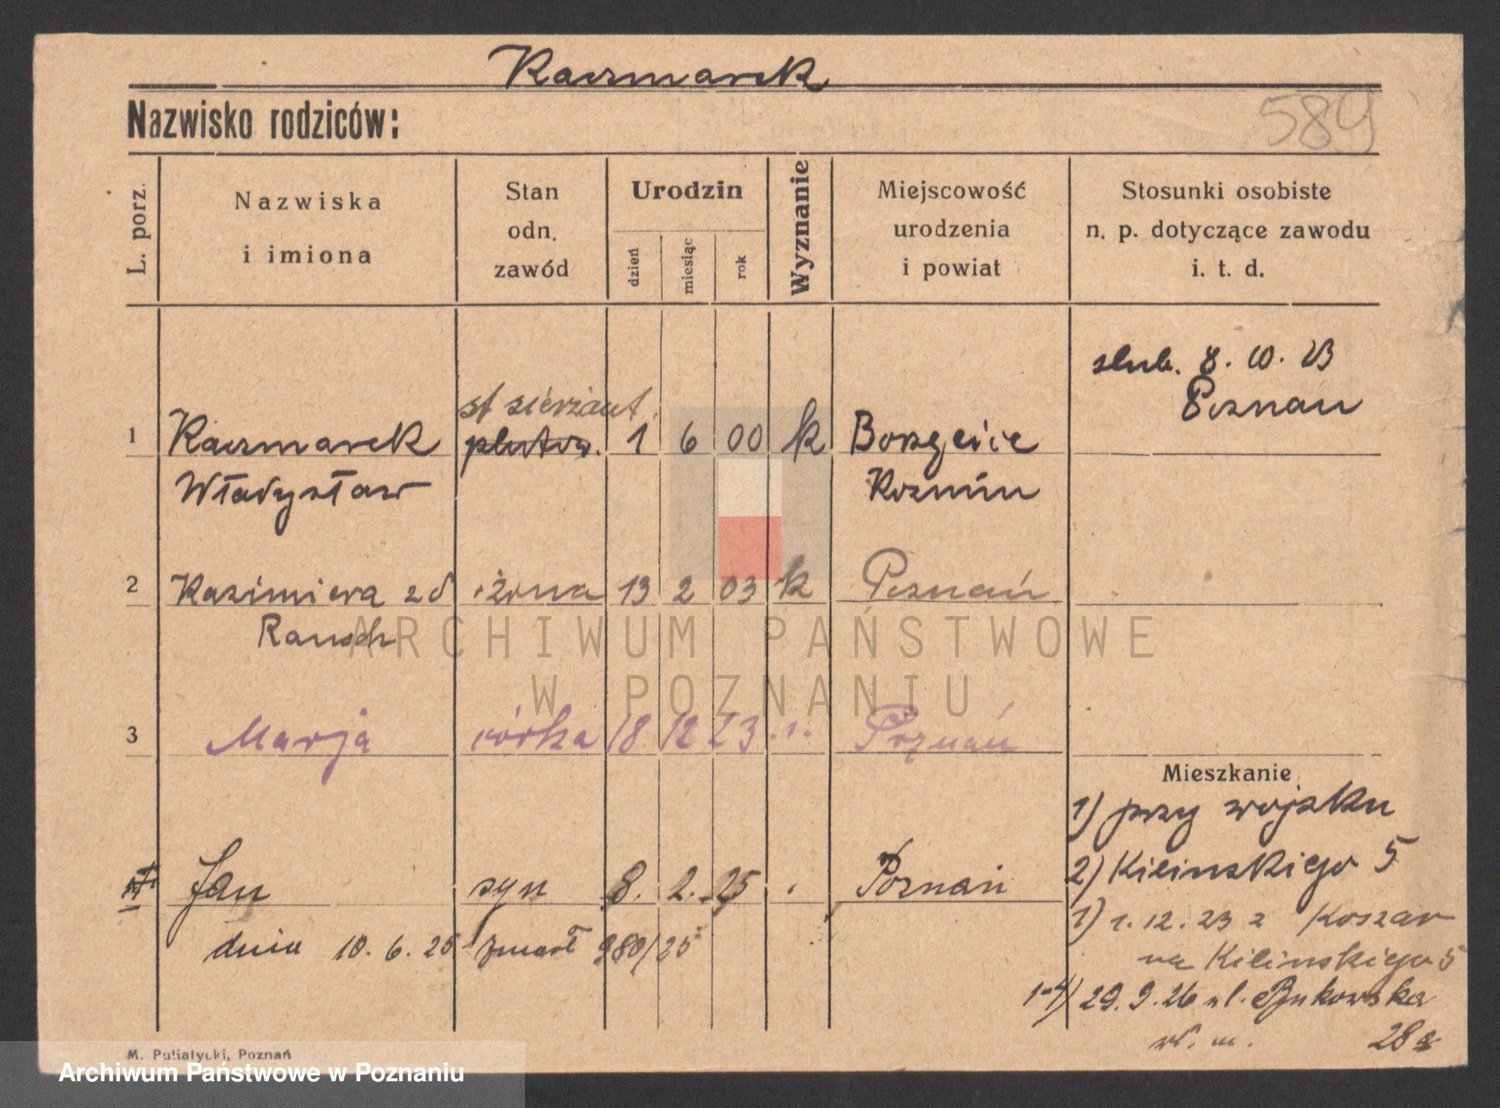 Kaczmarek
Nazwisko rodziców:
589
L. porz.
Nazwiska i imiona
Stan odn. zawód
Urodzin
dzień
miesiąc
rok
Wyznanie
Miejscowość urodzenia i powiat
Stosunki osobiste n. p. dotyczące zawodu i. t. d.
ślub. 8. 10. 23
Poznań
st sierżant
1 Kaczmarek plutow. 1 6 00 k Borzęcice
Władysław Kozmin
2 Kazimiera zd żona 13 2 03 k Poznań
Rausch
ARCHIWUM PAŃSTWOWE
W POZNANIU
3 Marja córka 18 12 23 Poznań
Mieszkanie
1) przy wojsku
Jan syn 8. 2. 25 Poznań
2) Kilinskiego 5
dnia 10. 6. 25 zmarł 980/25
1) 1. 12. 23 z Koszar
na Kilinskiego 5
1-4) 29. 9. 26 ul. Bukowska
28a
M. Putiatycki, Poznań
Archiwum Państwowe w Poznaniu